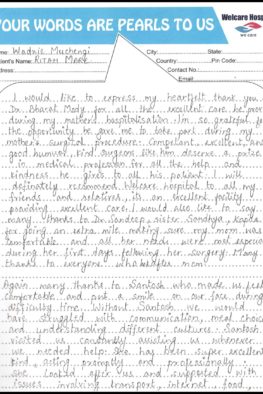 YOUR WORDS ARE PEARLS TO US
Welcare Hosp
WE CARE
me: Wadnie Muchengi
City: State:
ient's Name: RITAH MARK
Country: Pin Code:
dress:
Contact No.:
Email :
I would like to express my heartfelt thank you
Dr. Bharat Mody for all the excellent care he prov
during my mothers hospitalisation. I'm so grateful fo
the opportunity he gave me to take part during my
mothers surgical procedure. Competant, excellent and
good humour. Kind surgeons like him deserve a prize
in medical profession for all the help and
kindness he gives to all his patient. I will
definately recommend Welcare hospital to all my
friends and relatives, its an excellent facility
providing excellent care. I would also like to say
many thanks to Dr. Sandeep, sister Sandhya, Kapda
for going an extra mile making sure my mom was
comfortable and all her needs were met especia
during her first days following her surgery. Many
thanks to everyone who mom.
Again many thanks to Santosh who made us feel
comfortable and put a smile on our face during
difficulty time. Without Santosh we would
have struggled with communication, meal choice
and understanding different cultures. Santosh
visited us constantly assisting us whenever
we needed help. She has been super excellent
kind, acting promptly and professionally.
She looked after us and supported with
issues involving transport, internet, food,